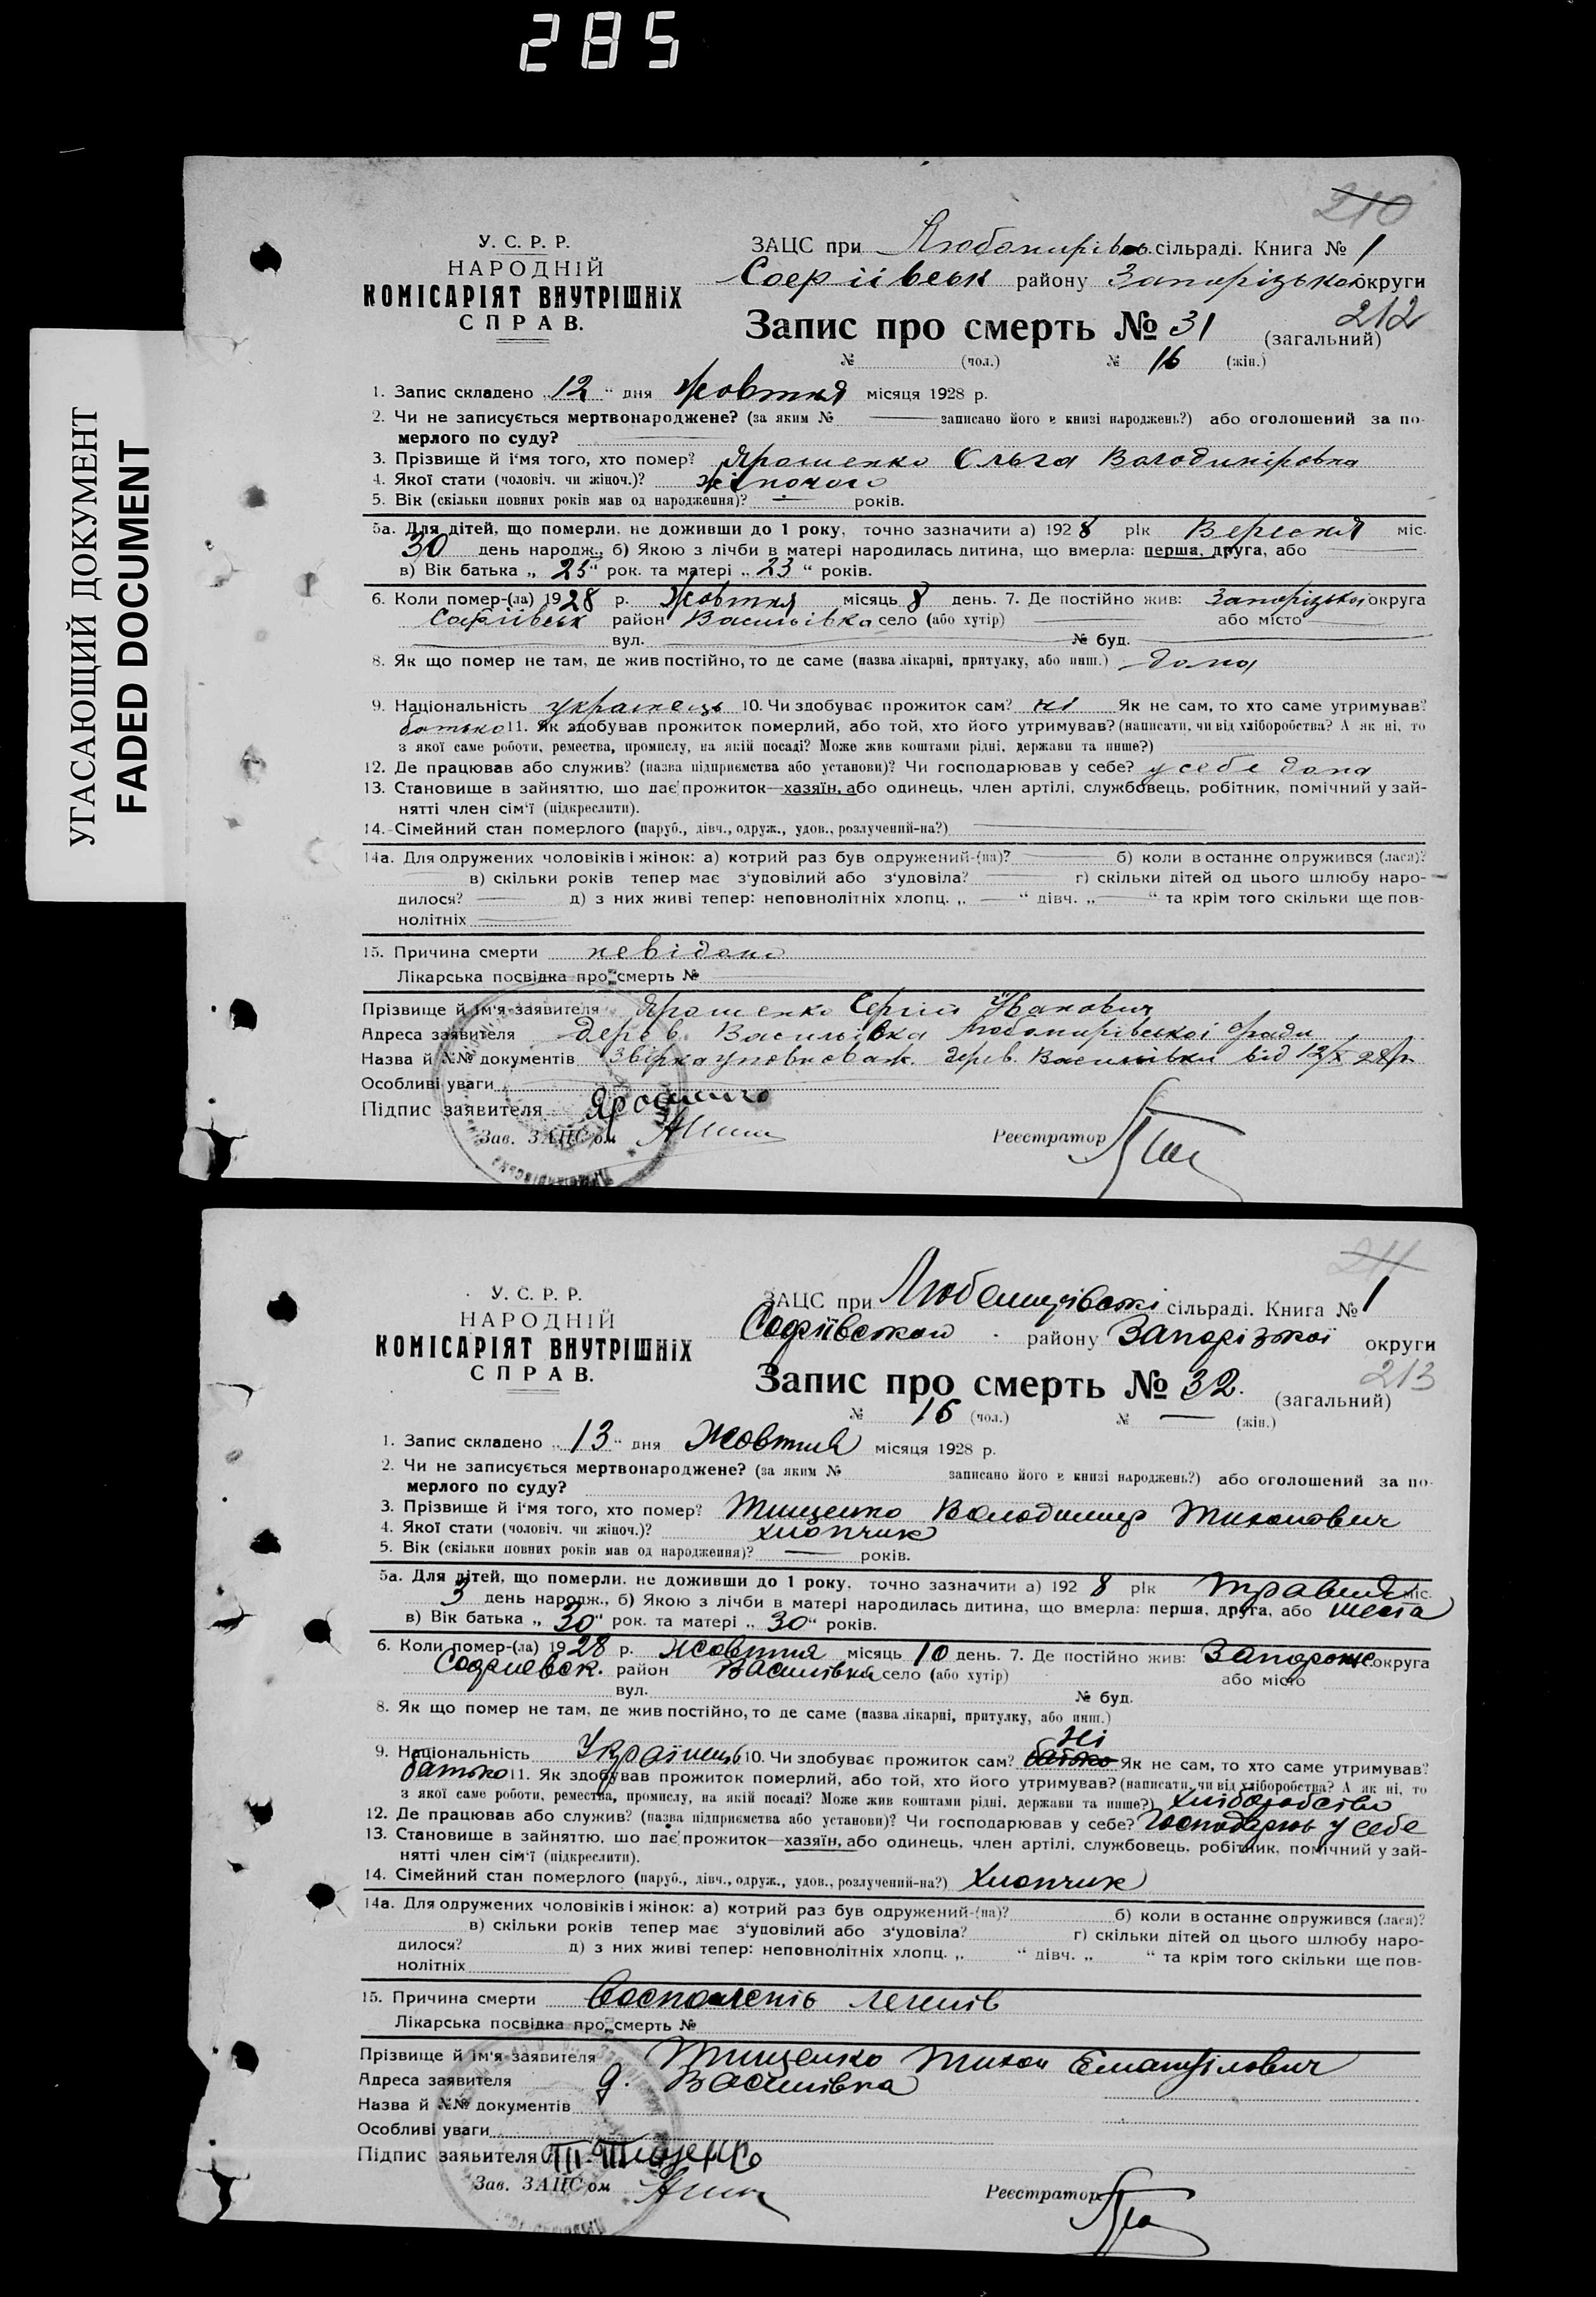 285
УГАСАЮЩИЙ ДОКУМЕНТ
FADED DOCUMENT
210
У. С. Р. Р.
НАРОДНІЙ
КОМІСАРІЯТ ВНУТРІШНІХ
СПРАВ.
ЗАЦС при Любомирівськ. сільраді. Книга № 1
району Запорізької округи
212
Запис про смерть № 31 (загальний)
№ (чол.) № 16 (жін.)
1. Запис складено „12" дня жовтня місяця 1928 р.
2. Чи не записується мертвонароджене? (за яким № — записано його в книзі народжень?) або оголошений за по-
мерлого по суду? —
3. Прізвище й ім'я того, хто помер? Ярошенко Ольга Володимировна
4. Якої стати (чоловіч. чи жіноч.)? жіночого
5. Вік (скільки повних років мав од народження)? — років.
5а. Для дітей, що померли, не доживши до 1 року, точно зазначити а) 1928 рік Вересня міс.
30 день народж., б) Якою з лічби в матері народилась дитина, що вмерла: перша, друга, або —
в) Вік батька „ " рок. та матері „ 23 " років.
6. Коли помер-(ла) 1928 р. жовтня місяць 8 день. 7. Де постійно жив: Запорізької округа
Софіївськ район Васильівка село (або хутір) — або місто —
— вул. — № буд. —
8. Як що помер не там, де жив постійно, то де саме (назва лікарні, притулку, або инш.) дома
9. Національність украинець 10. Чи здобуває прожиток сам? ні Як не сам, то хто саме утримував?
батько 11. Як здобував прожиток померлий, або той, хто його утримував? (написати, чи від хліборобства? А як ні, то
з якої саме роботи, ремества, промислу, на якій посаді? Може жив коштами рідні, держави та инше?)
12. Де працював або служив? (назва підприємства або установи)? Чи господарював у себе? у себе дома
13. Становище в зайняттю, що дає прожиток—хазяїн, або одинець, член артілі, службовець, робітник, помічний у зай-
нятті член сім'ї (підкреслити).
14. Сімейний стан померлого (паруб., дівч., одруж., удов., розлучений-на?) —
14а. Для одружених чоловіків і жінок: а) котрий раз був одружений-(на)? — б) коли в останнє одружився (лася)?
— в) скільки років тепер має з'удовілий або з'удовіла? — г) скільки дітей од цього шлюбу наро-
дилося? — д) з них живі тепер: неповнолітніх хлопц. „ — " дівч. „ — " та крім того скільки ще пов-
нолітніх —
15. Причина смерти невідомо
Лікарська посвідка про смерть № —
Прізвище й ім'я заявителя Ярошенко Сергій Іванович
Адреса заявителя дерев. Васильівка Любомирівської сради
Назва й №№ документів дерев. Васильівки від 12/X 28 р.
Особливі уваги
Підпис заявителя
Зав. ЗАЦС'ом
Реєстратор
211
У. С. Р. Р.
НАРОДНІЙ
КОМІСАРІЯТ ВНУТРІШНІХ
СПРАВ.
ЗАЦС при Любомирівські сільраді. Книга № 1
Софіївської району Запорізької округи
213
Запис про смерть № 32. (загальний)
№ 16 (чол.) № — (жін.)
1. Запис складено „13" дня Жовтня місяця 1928 р.
2. Чи не записується мертвонароджене? (за яким № записано його в книзі народжень?) або оголошений за по-
мерлого по суду?
3. Прізвище й ім'я того, хто помер? Тищенко Володимир Тихонович
4. Якої стати (чоловіч. чи жіноч.)? хлопчик
5. Вік (скільки повних років мав од народження)? — років.
5а. Для дітей, що померли, не доживши до 1 року, точно зазначити а) 1928 рік травня міс.
3 день народж., б) Якою з лічби в матері народилась дитина, що вмерла: перша, друга, або шеста
в) Вік батька „ 30 " рок. та матері „ 30 " років.
6. Коли помер-(ла) 1928 р. жовтня місяць 10 день. 7. Де постійно жив: округа
Софиевск. район Василівка село (або хутір) або місто
вул. № буд.
8. Як що помер не там, де жив постійно, то де саме (назва лікарні, притулку, або инш.)
9. Національність Українець 10. Чи здобуває прожиток сам? батько Ні Як не сам, то хто саме утримував?
батько 11. Як здобував прожиток померлий, або той, хто його утримував? (написати, чи від хліборобства? А як ні, то
з якої саме роботи, ремества, промислу, на якій посаді? Може жив коштами рідні, держави та инше?) хліборобство
12. Де працював або служив? (назва підприємства або установи)? Чи господарював у себе? у себе
13. Становище в зайняттю, що дає прожиток—хазяїн, або одинець, член артілі, службовець, робітник, помічний у зай-
нятті член сім'ї (підкреслити).
14. Сімейний стан померлого (паруб., дівч., одруж., удов., розлучений-на?) Хлопчик
14а. Для одружених чоловіків і жінок: а) котрий раз був одружений-(на)? б) коли в останнє одружився (лася)?
в) скільки років тепер має з'удовілий або з'удовіла? г) скільки дітей од цього шлюбу наро-
дилося? д) з них живі тепер: неповнолітніх хлопц. „ " дівч. „ " та крім того скільки ще пов-
нолітніх
15. Причина смерти легенів
Лікарська посвідка про смерть №
Прізвище й ім'я заявителя Тищенко Тихон
Адреса заявителя д. Василівка
Назва й №№ документів
Особливі уваги
Підпис заявителя Т. Тищенко
Зав. ЗАЦС'ом
Реєстратор